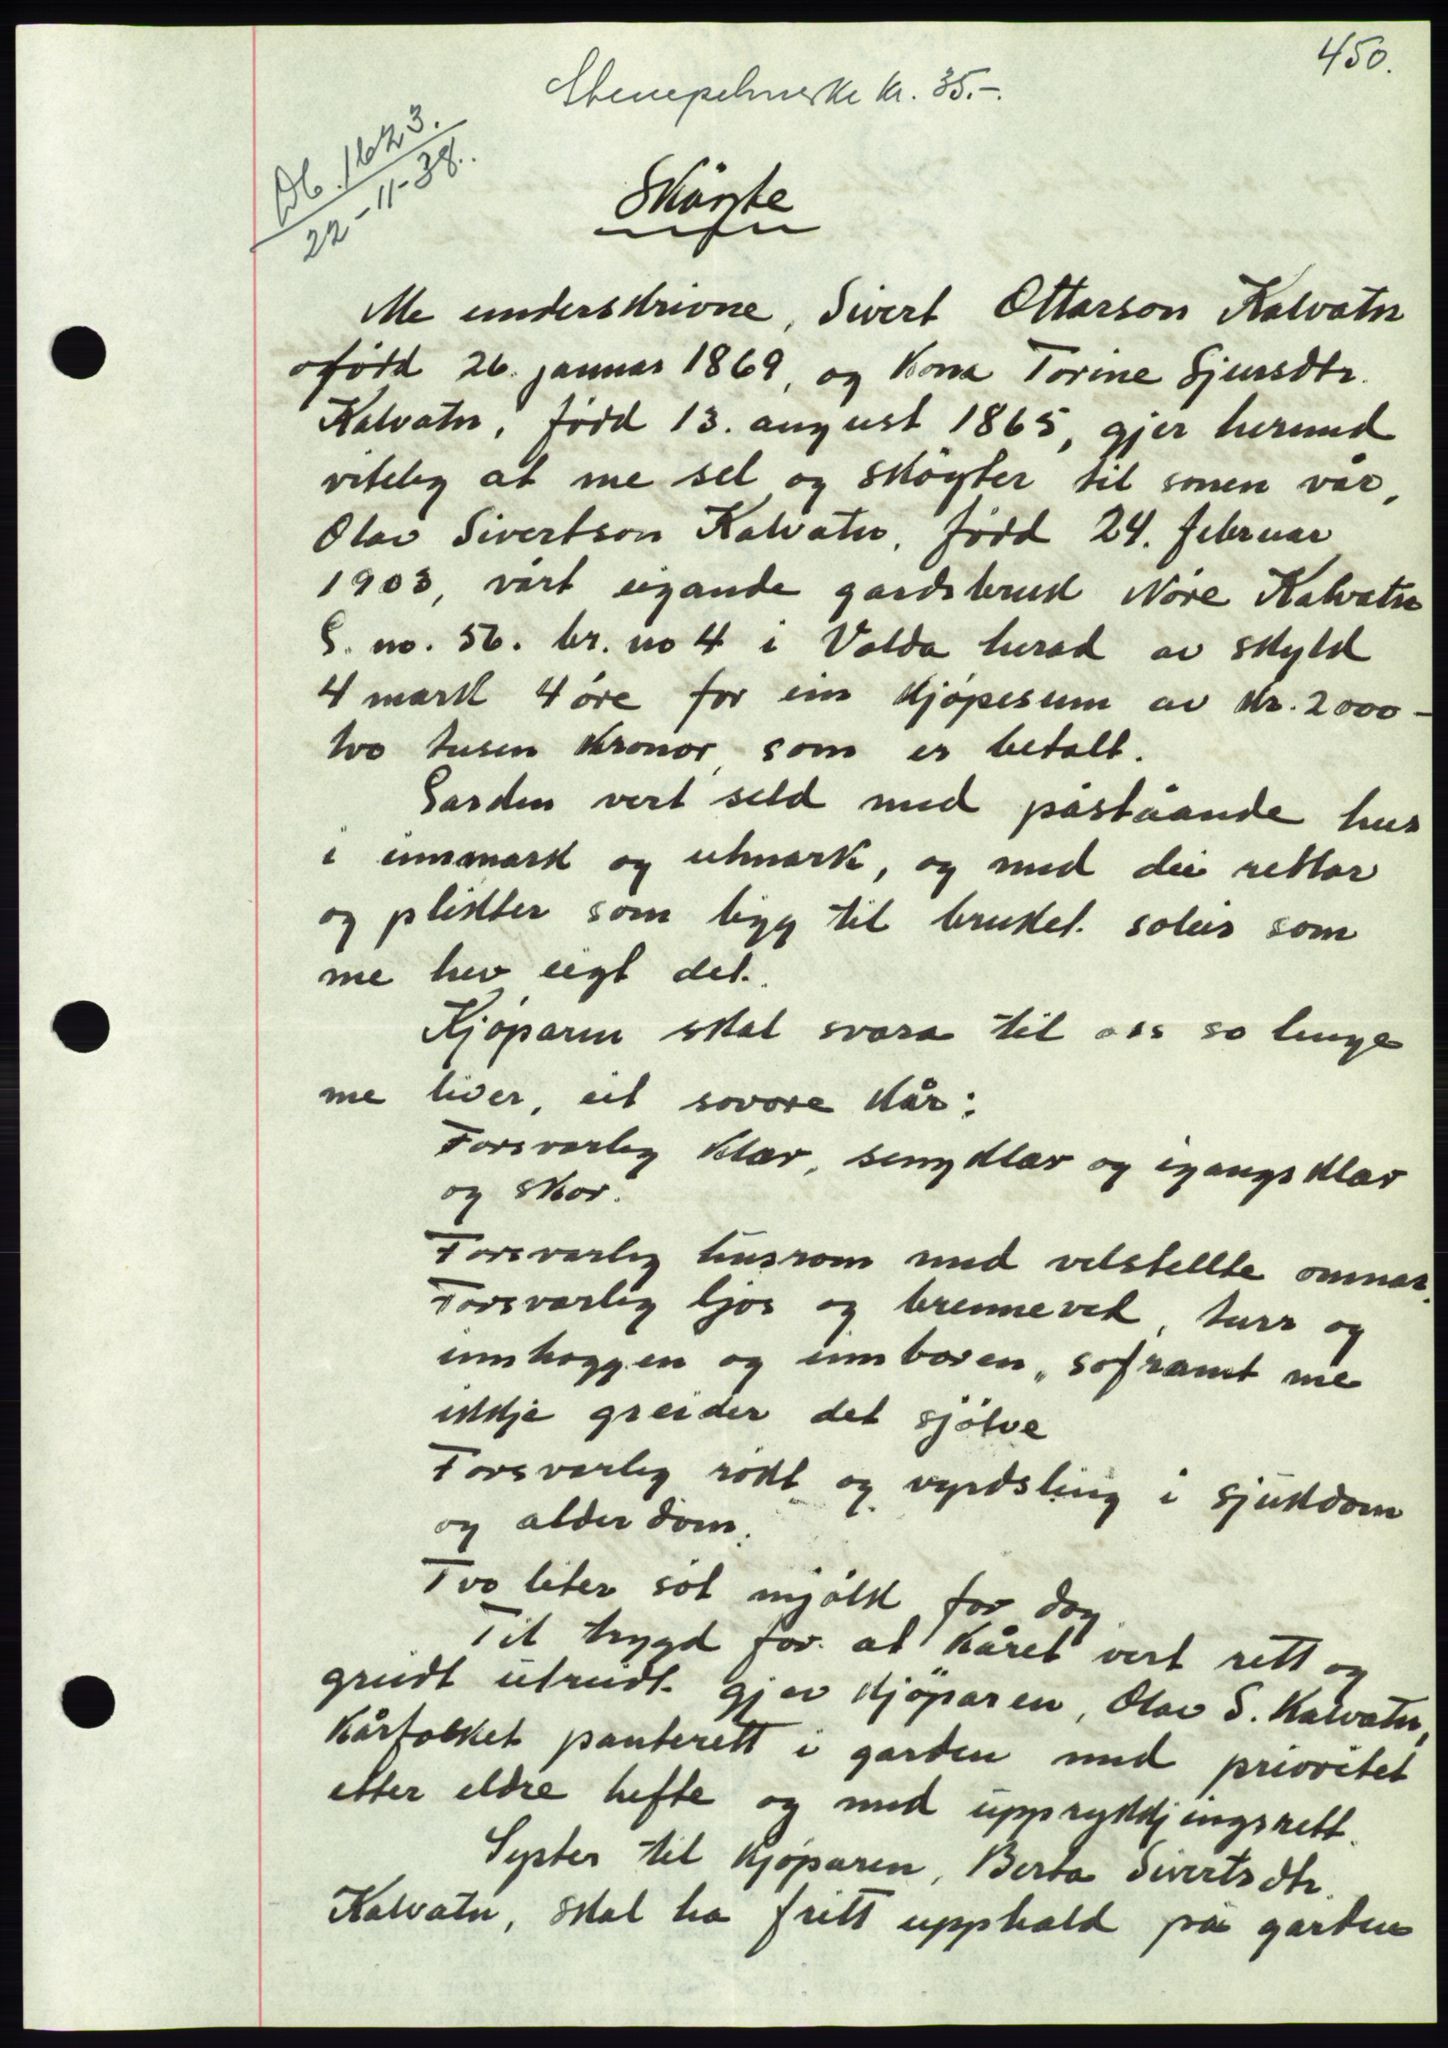 450.
Stempelmerke kr. 35.-.
Db. 1623.
22-11-38.
Skøyte
Me underskrivne, Sivert Ottarson Kalvatn
född 26. januar 1869, og kona Torine Sjursdtr.
Kalvatn, född 13. august 1865, gjer hermed
viteleg at me sel og sköyter til sonen vår,
Olav Sivertson Kalvatn, född 24. februar
1903, vårt eigande gardsbruk Nóre Kalvatn
G. no. 56. br. no 4 i Volda herad av skyld
4 mark 4 óre for ein kjópesum av kr. 2000-
tvo tusen kronor, som er betalt.
Garden vert seld med påståande hus
i innmark og utmark, og med dei rettar
og plikter som ligg til bruket. soleis som
me hev eigt det.
Kjóparen skal svara til oss so lenge
me liver, eit sovore kår:
Forsvarleg klær, sengklær og igangsklær
og skor.
Forsvarleg husrom med velstellte omnar.
Forsvarleg ljos og brenneved, turr og
innhoggen og innboren, soframt me
ikkje greider det sjölve
Forsvarleg rökt og vyrdsling i sjukdom
og alderdom.
Tvo liter söt mjólk for dag
Til trygd for at kåret vert rett og
greidt utreidt gjev kjöparen, Olav S. Kalvatn,
kårfolket panterett i garden med prioritet
etter eldre hefte og med uppryddjingsrett.
Syster til kjóparen, Berta Sivertsdtr.
Kalvatn, skal ha fritt upphald på garden